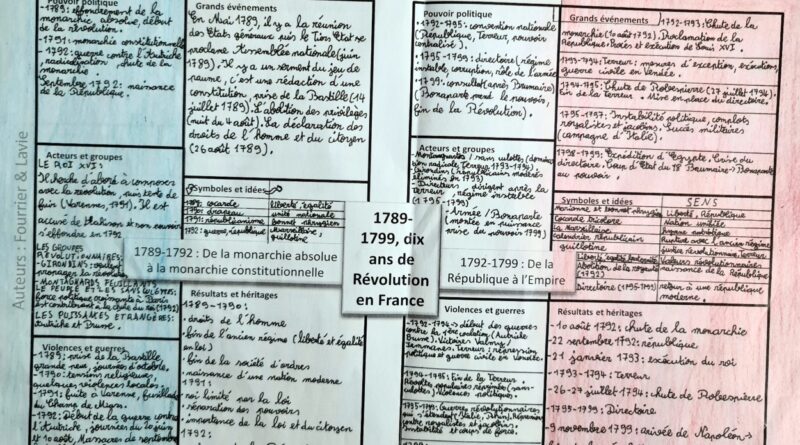 Auteurs : Fourrier & Lavie
- 1789: effondrement de la
monarchie absolue, début
de la révolution.
- 1791: monarchie constitutionnelle
- 1792: guerre contre l'Autriche
radicalisation, chute de la
monarchie.
Septembre 1792: naissance
de la République.
Acteurs et groupes
LE ROI XVI:
avec la révolution puis tente de
fuir (Varennes, 1791). Il est
accusé de trahison et son pouvoir
s'effondre en 1792.
LES GROUPES
RÉVOLUTIONNAIRES:
GIRONDINS:
propager la révolution
MONTAGNARDS FEUILLANTS
LE PEUPLE ET LES SANS CULOTTES:
force politique à Paris
contribuent à la chute du roi (1792)
LES PUISSANCES ETRANGÈRES:
Autriche et Prusse.
Violences et guerres
- 1789: prise de la Bastille,
grande peur, journées d'octobre.
- 1790: tensions religieuses,
quelques violences locales.
- 1791: fuite à Varenne, fusillade
du Champ de Mars.
- 1792: Début de la guerre contre
l'Autriche, journées du 20 juin
et 10 août, Massacres de septembre
Grands événements
En Mai 1789, il y a la réunion
des Etats généraux puis le Tiers Etat se
proclame Assemblée nationale (juin
1789). Il y a un serment du jeu de
paume, c'est une rédaction d'une
constitution, prise de la Bastille (14
juillet 1789). L'abolition des privilèges
(nuit du 4 août). La déclaration des
droits de l'homme et du citoyen
(26 août 1789).
Symboles et idées
1789: cocarde liberté, égalité
1790: drapeau unité nationale
1791: républicanisme bonnet phrygien
1792: guerre, république Marseillaise,
guillotine
1789-1792 : De la monarchie absolue
à la monarchie constitutionnelle
Résultats et héritages
1789-1790:
- droits de l'homme
- fin de l'ancien régime (liberté et égalité
en loi)
- fin de la société d'ordres
- naissance d'une nation moderne
1791:
- roi limité par la loi
- séparation des pouvoirs
- importance de la loi et du citoyen
1792:
1789-
1799, dix
ans de
Révolution
en France
Pouvoir politique
- 1792-1795: convention nationale
(République, Terreur, pouvoir
centralisé).
- 1795-1799: directoire (régime
instable, corruption, rôle de l'armée
- 1799: consulat (après Brumaire)
(Bonaparte prend le pouvoir,
fin de la Révolution).
Acteurs et groupes
Montagnards / sans culottes
radicale Terreur 1793-1794)
Girondins (républicains modérés
éliminés en 1793)
- Directeurs dirigent après la
terreur, régime instable
(1795-1799)
- Armée / Bonaparte
montée en puissance
prise du pouvoir 1799)
1792-1799 : De la
République à l'Empire
Violences et guerres
- 1792-1794 → début des guerres
contre la 1ère coalition (Autriche
Prusse). Victoires Valmy /
Jemmapes. Terreur: répression
politique et guerre civile en Vendée.
- 1794-1795: Fin de la Terreur.
Révoltes populaires réprimées (sans-
culottes) violences politiques.
1795-1799: Guerres révolutionnaires
contre royalistes et jacobins.
Instabilité et coups de force.
Grands événements
1792-1793: Chute de la
monarchie (10 août 1792). Proclamation de la
République. Procès et exécution de Louis XVI.
1793-1794: Terreur: mesures d'exception, exécutions,
guerre civile en Vendée.
1794-1795: Chute de Robespierre (27 juillet 1794).
Fin de la Terreur. Mise en place du directoire.
1795-1797: Instabilité politique, complots
royalistes et jacobins. Succès militaires
(campagne d'Italie).
1798-1799: Expédition d'Egypte. Crise du
directoire. Coup d'Etat du 18 Brumaire → Bonaparte
au pouvoir.
Symboles et idées SENS
Marianne et bonnet phrygien Liberté, République
Cocarde tricolore nation unifiée
La Marseillaise
Calendrier républicain Rupture avec l'ancien régime
guillotine
naissance de la République
Directoire (1795-1799) retour à une république
moderne.
Résultats et héritages
- 10 août 1792: chute de la monarchie
- 22 septembre 1792: république
- 21 janvier 1793: exécution du roi
- 1793-1794: Terreur
- 26-27 juillet 1794: chute de Robespierre
- 1795-1799: Directoire
- 9 novembre 1799: arrivée de Napoléon